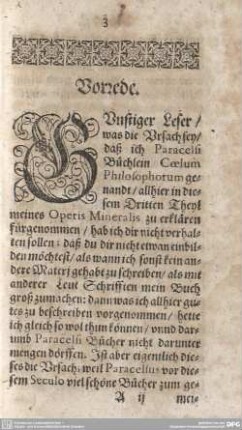 3
Vorrede.
GUnstiger Leser /
was die Ursach sey/
daß ich Paracelsi
Büchlein Cœlum
Philosophorum ge-
nandt / allhier in die-
sem Dritten Theyl
meines Operis Mineralis zu erklären
fürgenommen / hab ich dir nicht verhal-
ten sollen: daß du dir nicht etwan einbil-
den möchtest / als wann ich sonst kein an-
dere Materi gehabt zu schreiben / als mit
anderer Leut Schrifften mein Buch
groß zumachen: dann was ich allhier gu-
tes zu beschreiben vorgenommen / hette
ich gleich so wol thun können / unnd dar-
umb Paracelsi Bücher nicht darunter
mengen dörffen. Ist aber eigentlich die-
ses die Ursach, weil Paracelsus vor die-
sem Seculo viel schöne Bücher zum ge-
A ij mei-